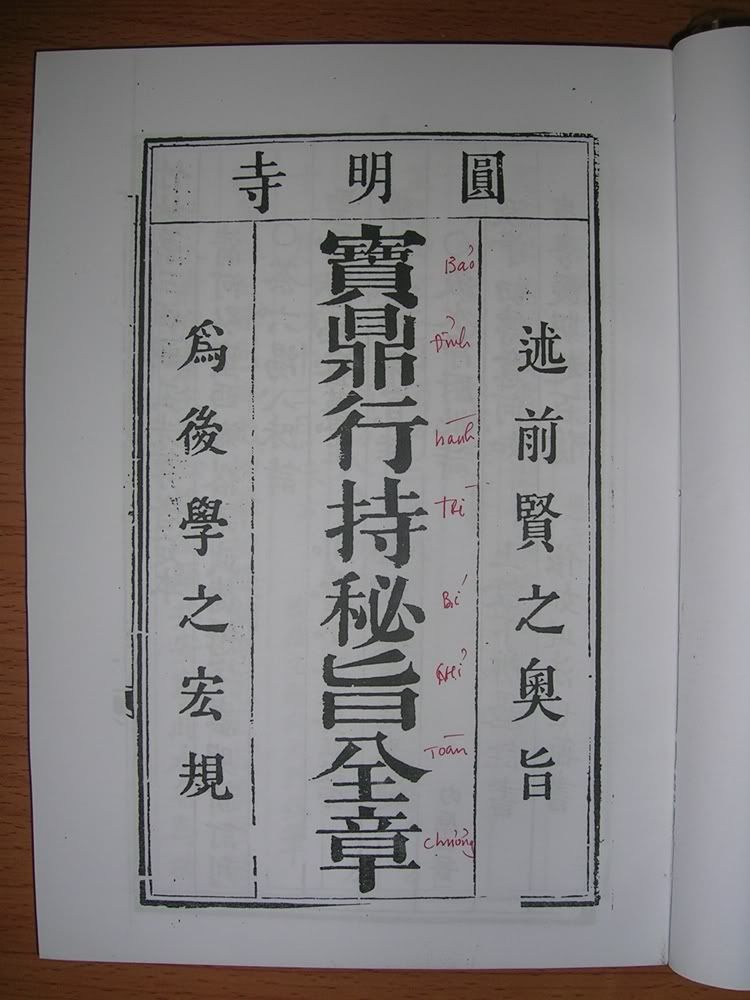 圓明寺
述前賢之奧旨
寶鼎行持秘旨全章
Bảo
Đỉnh
hành
trì
Bí
chỉ
Toàn
chương
爲後學之宏規